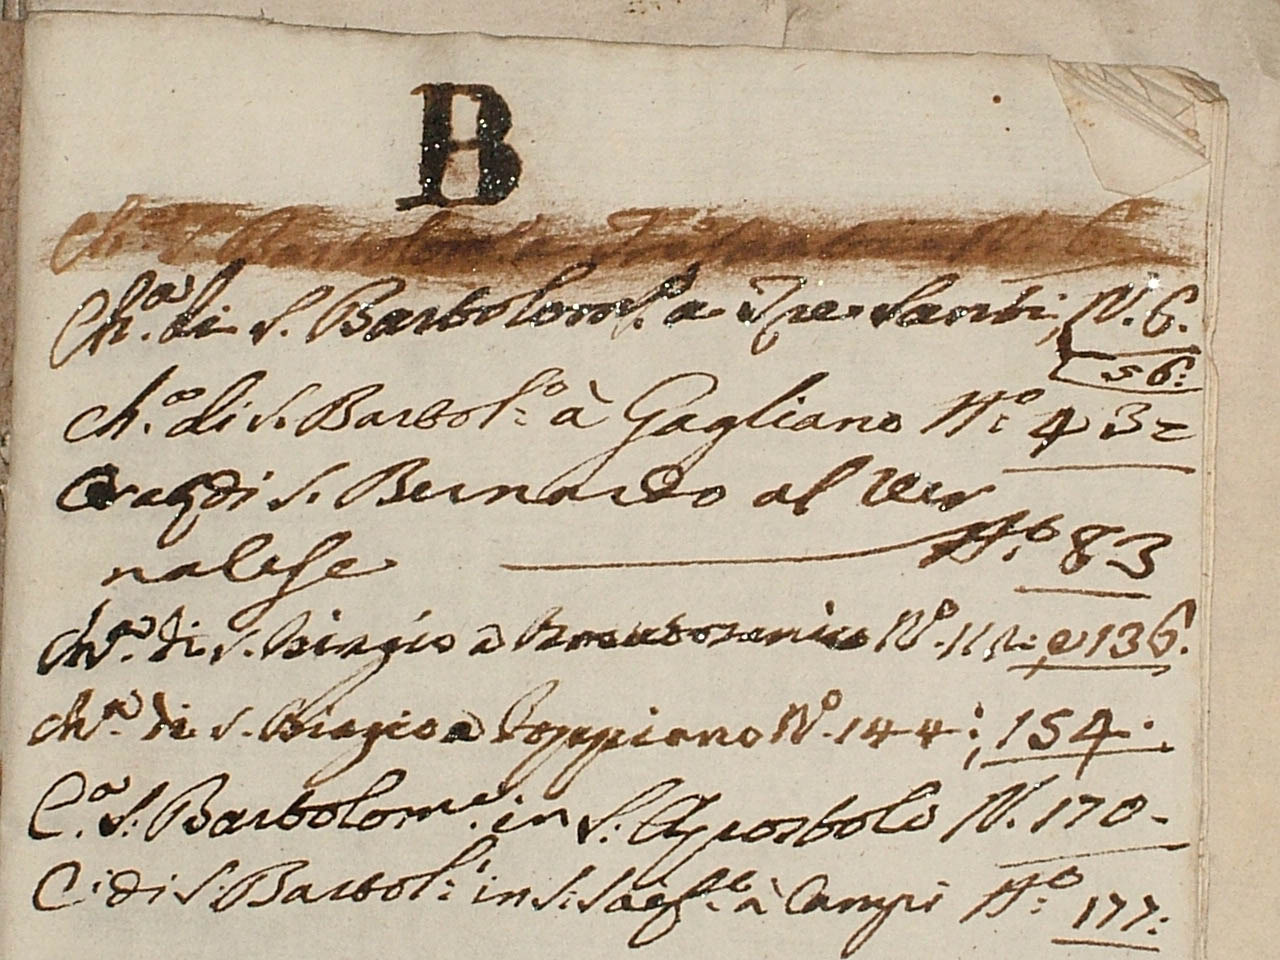 B
Ch.ª di S. Bartolom.º a Tre Santi, N. 6.
56:
Ch.ª di S. Bartol:º à Gagliano Nº: 43=
di S. Bernardo al Ver
nalese Nº: 83
Ch.ª di S. Biagio a Nº. 111: e 136.
Ch.ª di S. Biagio a Poppiano Nº. 144; 154.
C.ª S. Bartolom.º in S. Apostolo N. 170-
C: di S: Bartol: in S: à Campi Nº: 177: